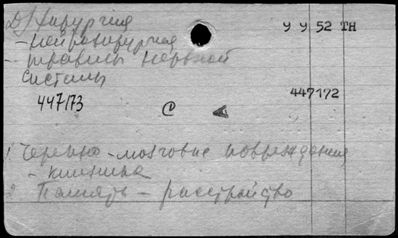 D) Хирургия
У У 52 ТН
- нейрохирургия
- травмы нервной
системы
447173
С
447172
1 Черепно-мозговые повреждения
- клиника
2 Память - расстройство